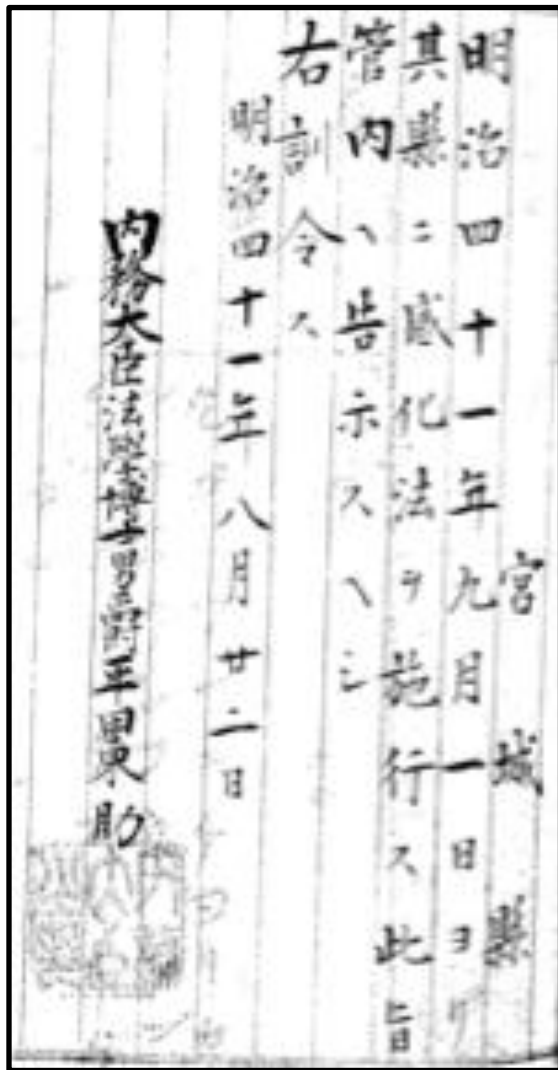 宮城縣
明治四十一年九月一日ヨリ
其縣ニ感化法ヲ施行ス此旨
管内ヘ告示スヘシ
右訓令ス
明治四十一年八月廿二日
内務大臣法學博士男爵平田東助